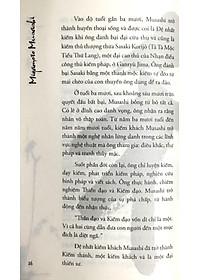 Miyamoto Musashi
Vào độ tuổi gần ba mươi, Musashi trở
thành huyền thoại sống và được coi là Đệ nhất
kiếm khách khi ông đánh bại đại cừu thù và cũng
là kiếm thủ thượng thừa Sasaki Kojirō (Tá Tá Mộc
Tiểu Thứ Lang), một đại cao thủ của Nhạn điểu
công kiếm pháp, ở Ganryū Jima. Ông đánh
bại Sasaki bằng một thanh mộc kiếm tự đẽo từ mái
chèo của con thuyền đưa ông đến nơi quyết đấu.
Ở tuổi ba mươi, sau khi khoan sáu mươi trận
quyết đấu bất bại, Musashi bỗng từ bỏ tất cả.
Có lẽ ở đỉnh cao danh vọng, ông nhận ra rằng tất
nhiên vô thập toàn. Từ năm ba mươi tuổi đến
năm năm mươi tuổi, kiếm khách Musashi trở
thành một nghệ nhân lừng danh trong các lĩnh
vực nghệ thuật mà ông tham gia: điêu khắc, thư
pháp và tranh thủy mặc.
Suốt phần đời còn lại, ông chỉ luyện kiếm,
dạy kiếm, phát triển kiếm pháp, nghiên cứu
binh pháp và viết sách. Ông thực hành, chiêm
nghiệm Thiền đạo và Kiếm đạo. Musashi trở
thành biểu tượng của sự phá chấp, có hành
động đến nhận thức.
"Thiền đạo và Kiếm đạo vốn dĩ chỉ là một.
Vì cả hai cùng dẫn đưa con người đến một mục
đích là diệt ngã."
Đệ nhất kiếm khách Musashi đã trở thành
Kiếm thánh, một kiếm khách và là một đại
thiền sư.
16